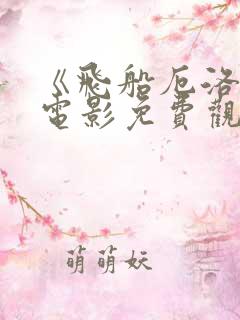 《飛船厄洛
電影免費觀
萌萌妖